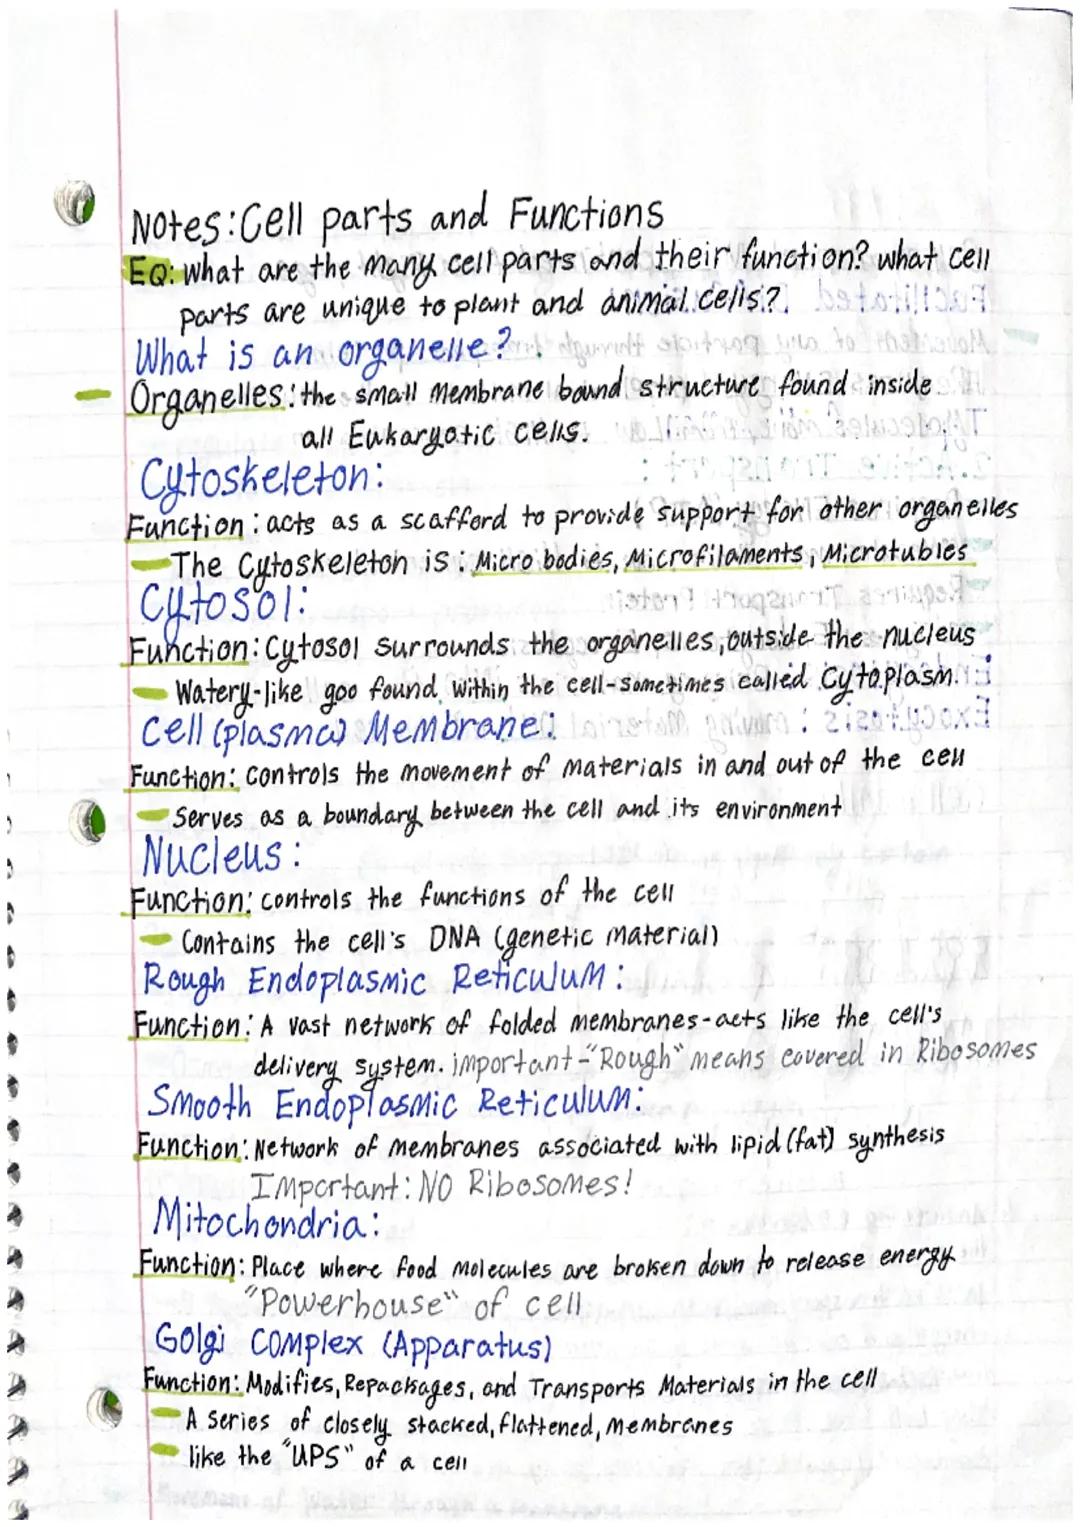 Notes: Cell parts and Functions
EQ: what are the many cell parts and their function? what cell
parts are unique to plant and animal cells?
What is an organelle?
- Organelles: the small membrane bound structure found inside
all Eukaryotic cells.
Cytoskeleton:
Function: acts as a scafford to provide support for other organelles
- The Cytoskeleton is: Micro bodies, Microfilaments, Microtubles
Cytosol:
Function: Cytosol surrounds the organelles, outside the nucleus
- Watery-like goo found within the cell-sometimes called Cytoplasm.
Cell (plasma) Membrane:
Function: controls the movement of materials in and out of the cell
- Serves as a boundary between the cell and its environment
Nucleus:
Function: controls the functions of the cell
- Contains the cell's DNA (genetic material)
Rough Endoplasmic Reticulum:
Function: A vast network of folded membranes-acts like the cell's
delivery system. important-"Rough" means covered in Ribosomes
Smooth Endoplasmic Reticulum:
Function: Network of membranes associated with lipid (fat) synthesis
Important: NO Ribosomes!
Mitochondria:
Function: Place where food molecules are broken down to release energy
"Powerhouse" of cell
Golgi Complex (Apparatus)
Function: Modifies, Repackages, and Transports Materials in the cell
- A series of closely stacked, flattened, membranes
- like the "UPS" of a cell